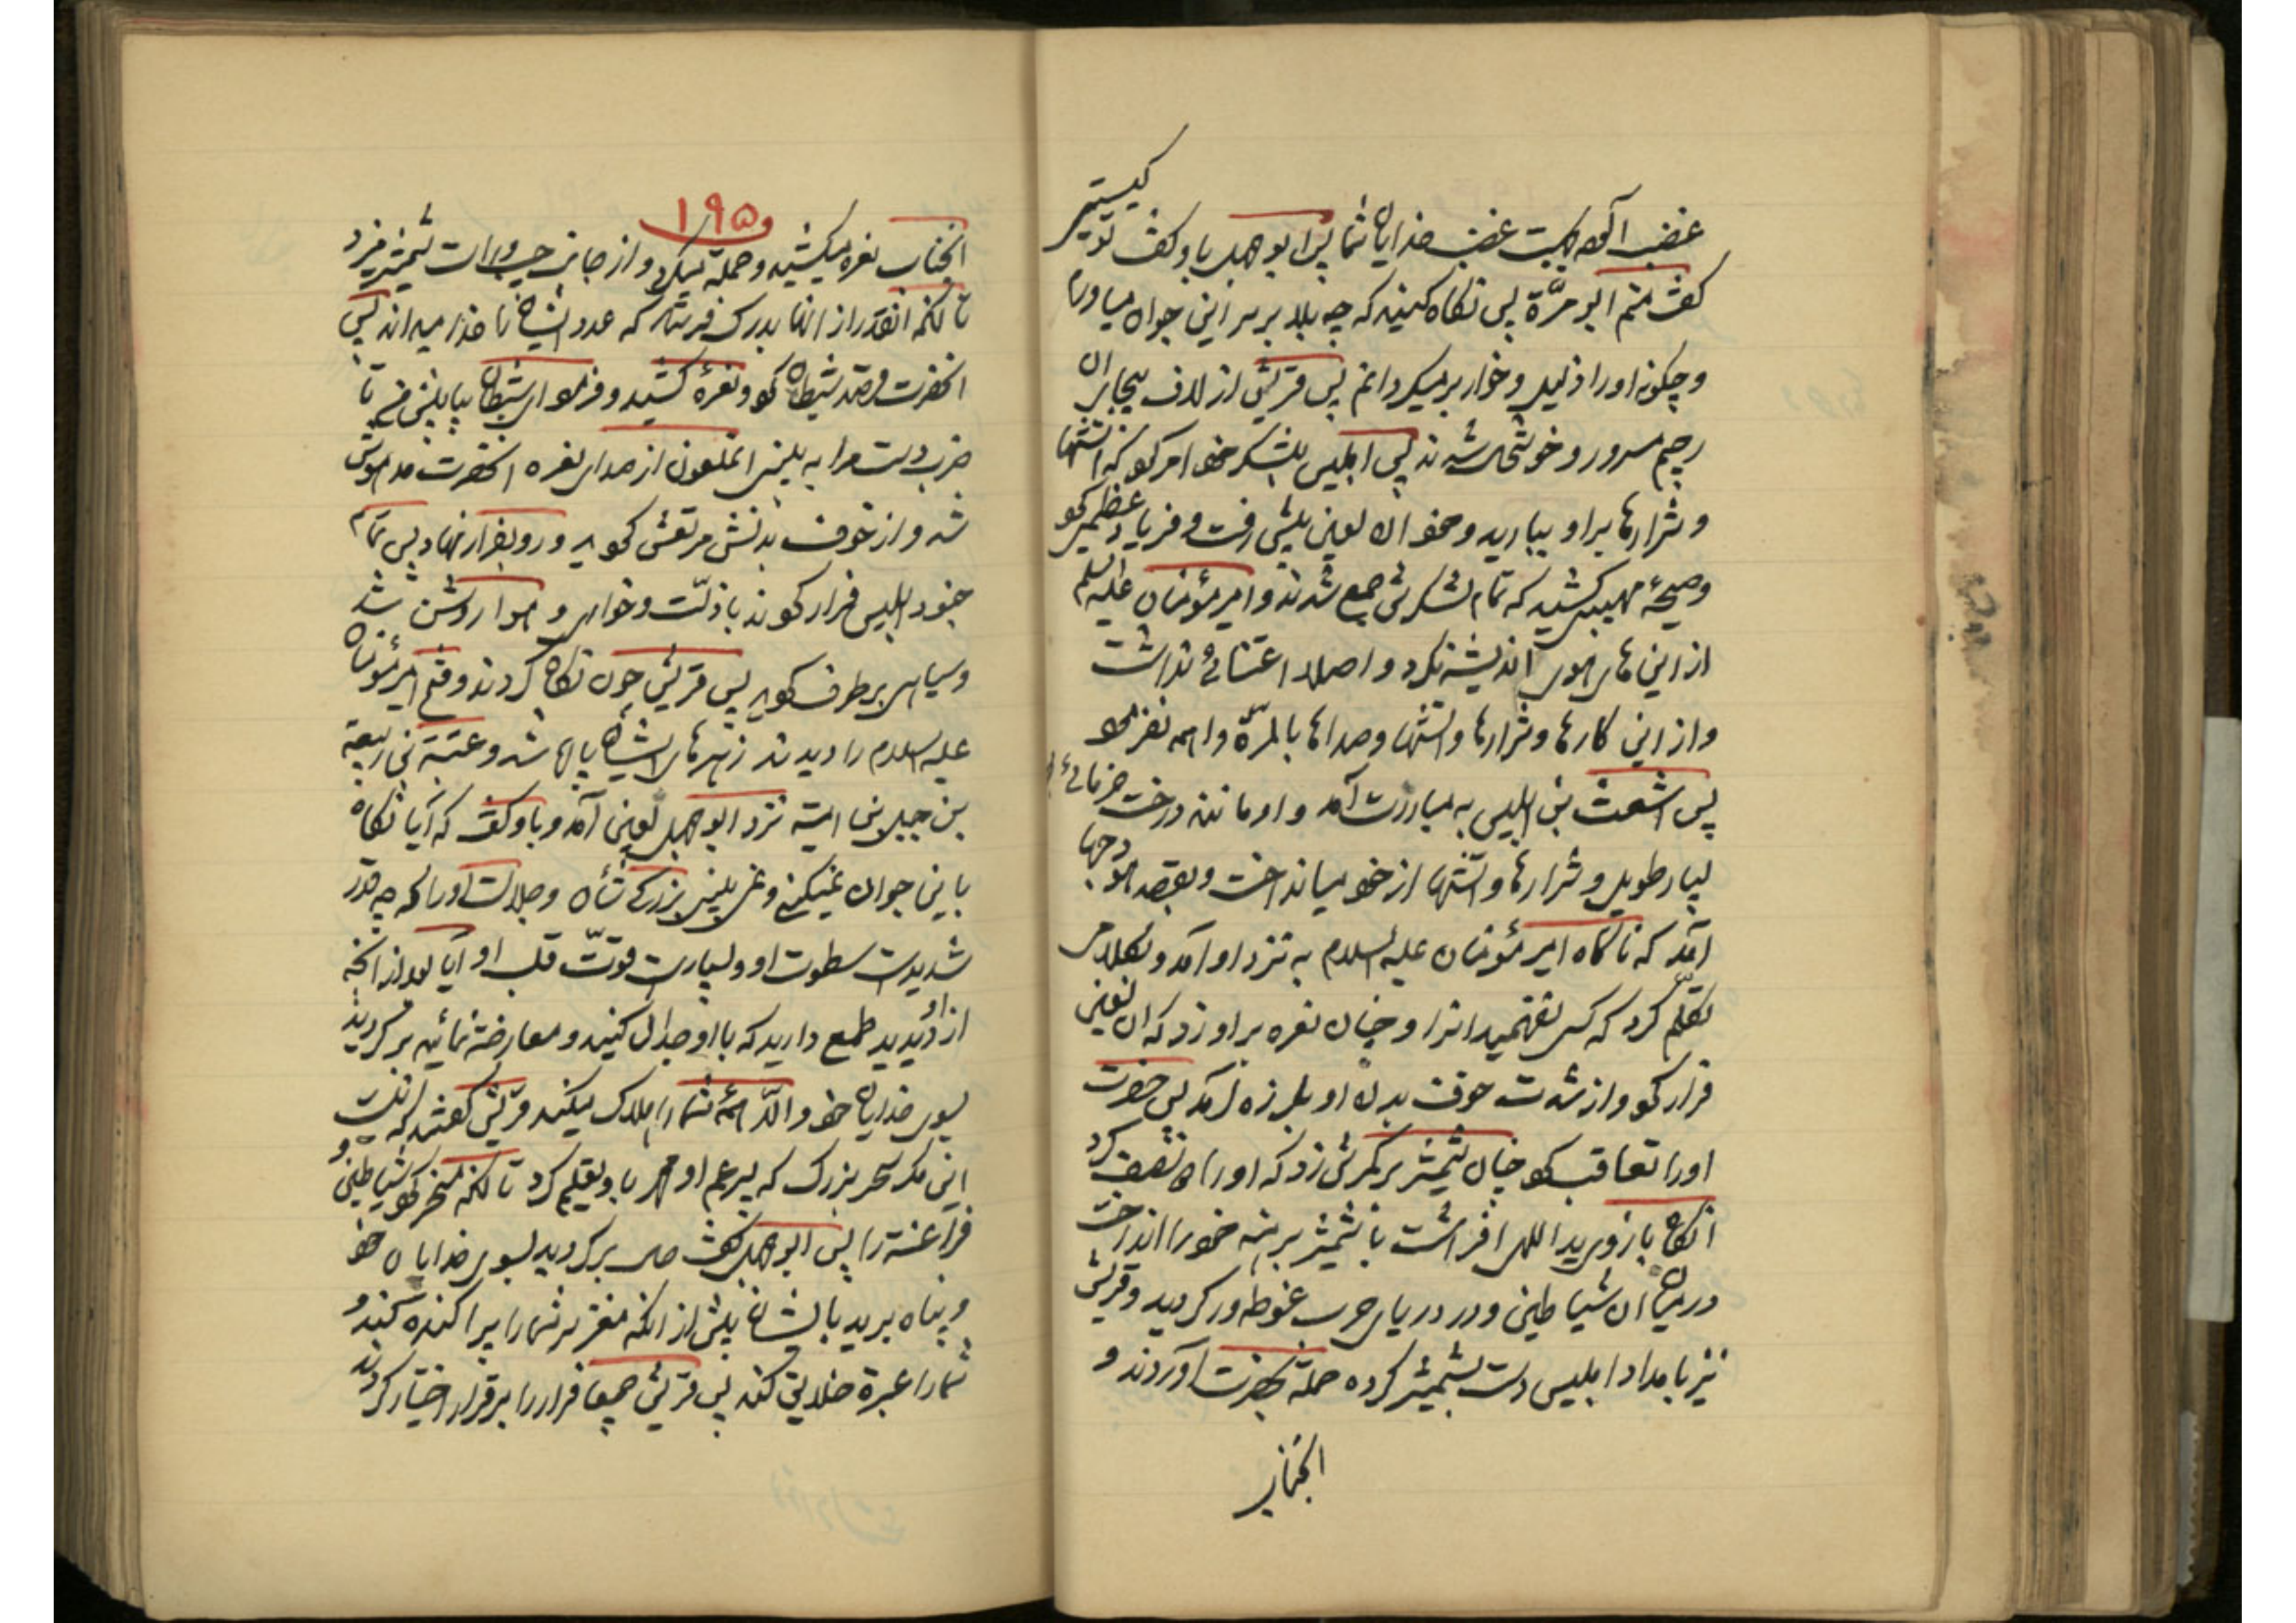 غضب آلهه است غضب خدایان شما پس ابوجهل باو گفت تو کیستی
گفت منم ابو مرّة پس نگاه کنید که چه بلا بر سر این جوان میاورم
و چگونه او را ذلیل و خوار بر میگردانم پس قریش از لاف بیجای ان
رجیم مسرور و خوشحال شدند پس ابلیس بلشکر خود امر کرد که اتشها
و شرارها بر او ببارید و خود ان لعین پیش رفت و فریاد عظیمی کرد
و صیحهٔ مهیبی کشید که تمام لشکرش جمع شدند و امیر مؤمنان علیه السلم
از این های هوی اندیشه نکرد و اصلا اعتنائی نداشت
و از این کارها و شرارها و اتشها و صداها بالمرّه واهمه نفرمود
پس اشعث بن ابلیس به مبارزت آمد و او مانند درخت خرمائی
بسیار طویل و شرارها و اتشها از خود میانداخت و بقصد
آمد که ناگاه امیر مؤمنان علیه السلام به نزد او آمد و بکلامی
تکلّم کرد که کسی نفهمید انرا و چنان نعره بر او زد که ان لعین
فرار کرد و از شدت خوف بدن او بلرزه آمد پس حضرت
او را تعاقب کرد چنان شمشیر بر کمرش زد که او را نصف کرد
انگاه بازوی ید اللهی افراشت با شمشیر برهنه خود را انداخت
در میان ان شیاطین و در دریای حرب غوطه ور گردید و قریش
نیز بامداد ابلیس دست بشمشیر کرده حمله بحضرت آوردند و
انجناب
۱۹۵
انجناب نعره میکشید و حمله میکرد و از جانب چپ و راست شمشیر میزد
تا انکه انقدر از انها بدرک فرستاد که عدد ایشان را خدا میداند پس
انحضرت قصد شیطان کرد و نعرهٔ کشید و فرمود ای شیطان بیا پیش من تا
ضرب دست مرا به بینی انملعون از صدای نعره انحضرت مدهوش
شد و از خوف بدنش مرتعش گردید و رو بفرار نهاد پس تمام
جنود ابلیس فرار کردند با ذلّت و خواری و هوا روشن شد
و سیاهی بر طرف گردید پس قریش چون نگاه کردند و فتح امیر مؤمنان
علیه السلام را دیدند زهرهای ایشان پاره شد و عتبة بن ربیعة
بن امیة نزد ابوجهل لعین آمد و باو گفت که آیا نگاه
باین جوان نمیکنی و نمی بینی بزرگی شأن و جلالت او را که چه قدر
شدید است سطوت او و بسیار است قوّت قلب او آیا بعد از انچه
از او دیدید طمع دارید که با او جدال کنید و معارضه نمائید بر گردید
بسوی خدایان خود و الّا همهٔ شما را هلاک میکند قریش گفتند که نیست
این مگر سحر بزرگ که پسر عم او محمد باو تعلیم کرد تا انکه مسخر کرد شیاطین و
فراعنه را پس ابوجهل گفت برگردید بسوی خدایان خود
و پناه برید بایشان پیش از انکه مغز سر شما را پراکنده کند و
شما را عبرة خلایق کند پس قریش جمیعا فرار را بر قرار اختیار کردند